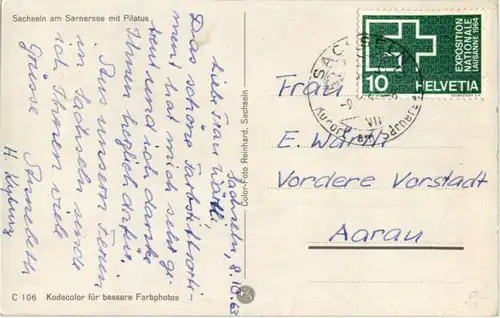 Sachseln am Sarnersee mit Pilatus
Sachseln, 8.10.63
Liebe Frau Wärtli,
Das schöne Farbstiftporte-
ment hat mich sehr ge-
freut und ich danke
Ihnen herzlich dafür.
Aus unseren Ferien
in Sachseln sende
ich Ihnen viele
Grüsse Annebeth
H. Kyburz
C 106 Kodacolor für bessere Farbphotos
Color-Foto Reinhard, Sachseln
EXPOSITION
NATIONALE
LAUSANNE 1964
10 HELVETIA
SACHSELN
Kurort am Sarnersee
VII
Frau
E. Wärtli
Vordere Vorstadt
Aarau